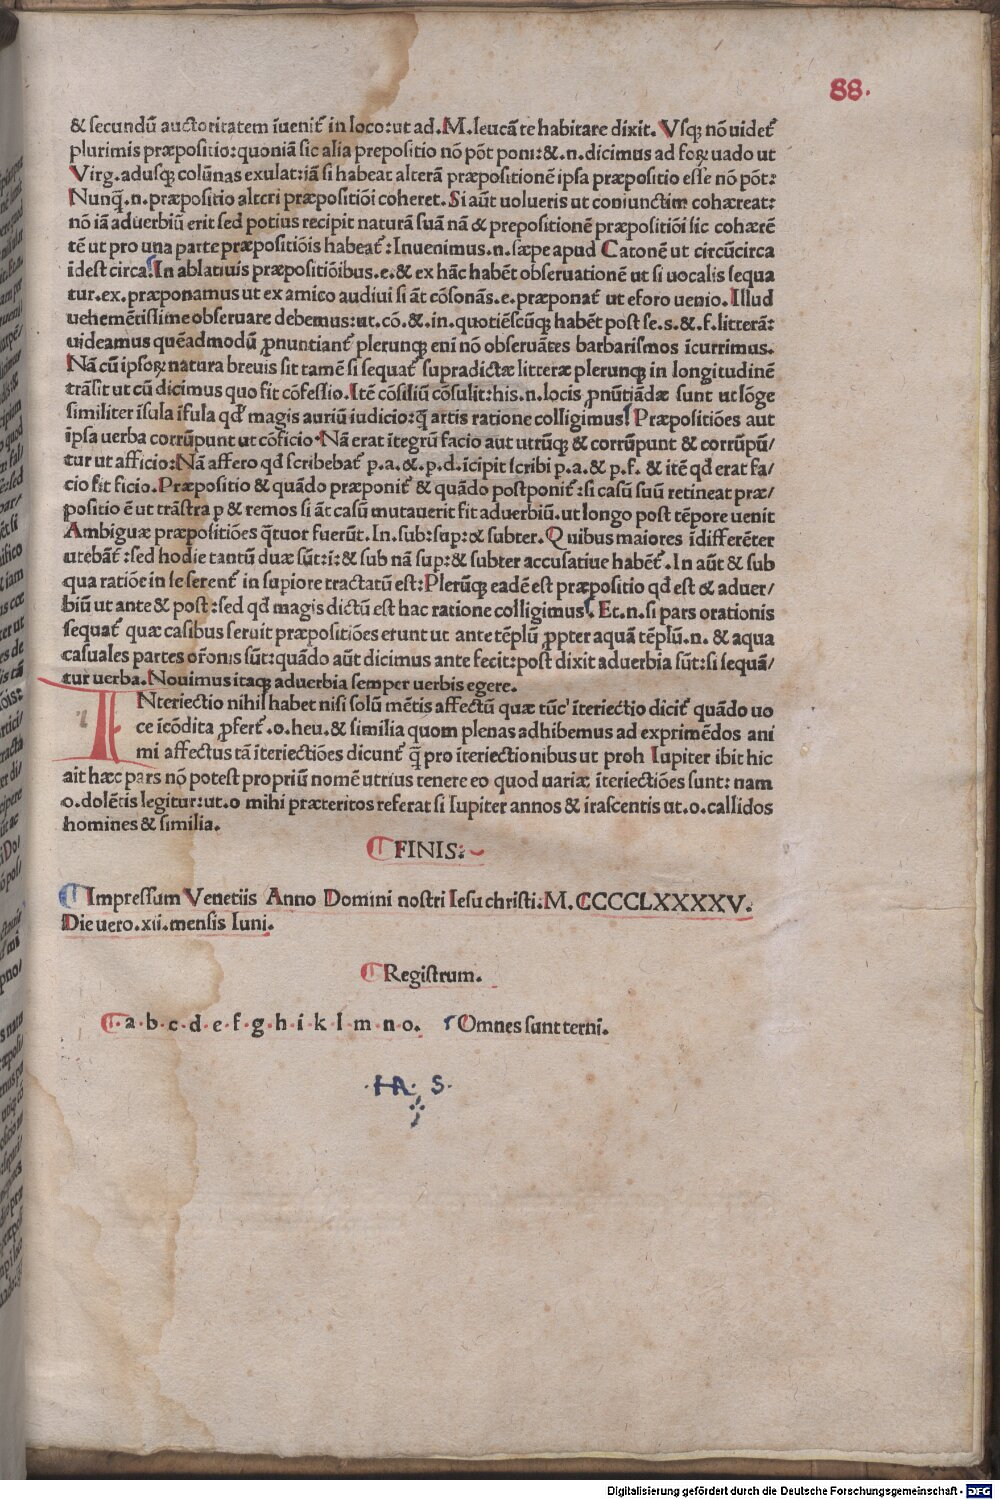 88.
& secundū auctoritatem īuenit᷑ in loco:ut ad.M.leucā te habitare dixit.Vsqꝫ nō uidet᷑
plurimis præpositio:quoniā sic alia prepositio nō pōt poni:&.n.dicimus ad foꝝ uado ut
Virg.adusqꝫ colūnas exulat:iā si habeat alterā præpositionē ipsa præpositio esse nō pōt:
Nunq̄.n.præpositio alteri præpositiōi coheret.Si aūt uolueris ut coniunctim cohæreat:
nō iā aduerbiū erit sed potius recipit naturā suā nā & prepositionē præpositiōi sic cohærē
tē ut pro una parte præpositiōis habeat᷑:Inuenimus.n.sæpe apud Catonē ut circūcirca
īdest circa.In ablatiuis præpositiōibus.e.& ex hāc habēt obseruationē ut si uocalis sequa
tur.ex.præponamus ut ex amico audiui si āt cōsonās.e.præponat᷑ ut eforo uenio.Illud
uehemētissime obseruare debemus:ut.cō.&.in.quotiēscūqꝫ habēt post se.s.&.f.litterā:
uideamus quēadmodū ꝓnuntiant᷑ plerunqꝫ eni nō obseruātes barbarismos īcurrimus.
Nā cū ipsoꝝ natura breuis sit tamē si sequat᷑ supradictæ litteræ plerunqꝫ in longitudinē
trāsit ut cū dicimus quo fit cōfessio.Itē cōsiliū cōsulit:his.n.locis ꝓnūtiādæ sunt ut lōge
similiter īsula īfula qđ magis auriū iudicio:q̄ artis ratione colligimus.Præpositiōes aut
īpsa uerba corrūpunt ut cōficio.Nā erat ītegrū facio aut utrūqꝫ & corrūpunt & corrūpū/
tur ut afficio:Nā affero qđ scribebat᷑ p.a.&.p.d.īcipit scribi p.a.& p.f. & itē qđ erat fa/
cio fit ficio.Præpositio & quādo præponit᷑ & quādo postponit᷑:si casū suū retineat præ/
positio ē ut trāstra p & remos si āt casū mutauerit fit aduerbiū.ut longo post tēpore uenit
Ambiguæ præpositiōes q̄tuor fuerūt.In.sub:sup:& subter.Quibus maiores īdifferēter
utebāt᷑:sed hodie tantū duæ sūt:i:& sub nā sup:& subter accusatiue habēt᷑.In aūt & sub
qua ratiōe in se serent᷑ in supiore tractatū est:Plerūqꝫ eadē est præpositio qđ est & aduer/
biū ut ante & post:sed qđ magis dictū est hac ratione colligimus.Et.n.si pars orationis
sequat᷑ quæ casibus seruit præpositiōes erunt ut ante tēplū ꝓpter aquā tēplū.n. & aqua
casuales partes or̄onis sūt:quādo aūt dicimus ante fecit:post dixit aduerbia sūt:si sequā/
tur uerba.Nouimus itaqꝫ aduerbia semper uerbis egere.
INteriectio nihil habet nisi solū mētis affectū quæ tūc īteriectio dicit᷑ quādo uo
ce īcōdita ꝓfert᷑.o.heu.& similia quom plenas adhibemus ad exprimēdos ani
mi affectus tā īteriectiōes dicunt᷑ q̄ pro īteriectionibus ut proh Iupiter ibit hic
ait hæc pars nō potest propriū nomē utrius tenere eo quod uariæ īteriectiōes sunt: nam
o.dolētis legitur:ut.o mihi præteritos referat si Iupiter annos & irascentis ut.o.callidos
homines & similia.
FINIS:
Impressum Venetiis Anno Domini nostri Iesu christi:M.CCCCLXXXXV.
Die uero.xii.mensis Iuni.
Registrum.
a.b.c.d.e.f.g.h.i.k.l.m.n.o. Omnes sunt terni.
.HR. S.
Digitalisierung gefördert durch die Deutsche Forschungsgemeinschaft - DFG